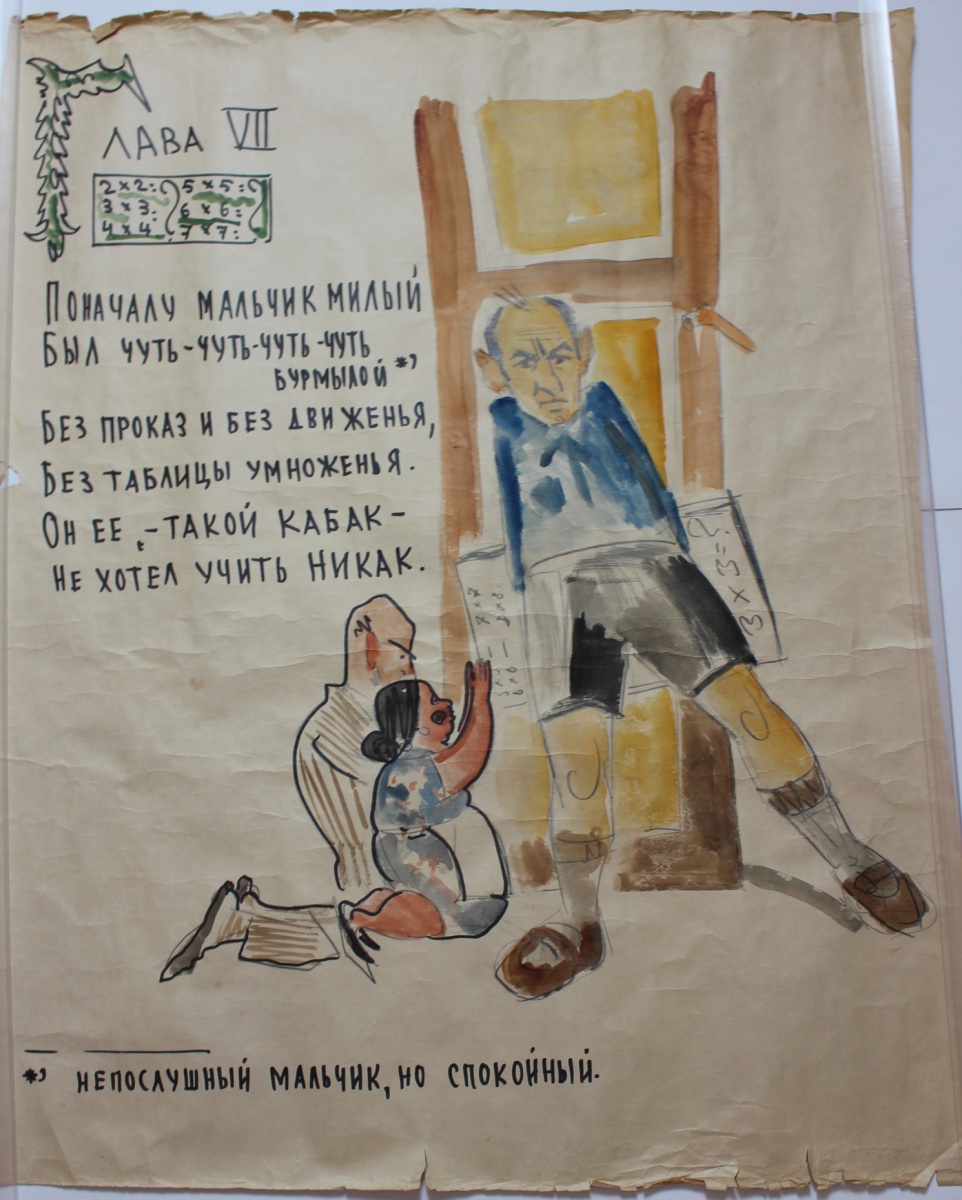 Глава VII
2×2= 5×5=
3×3= 6×6=
4×4= 7×7=
Поначалу мальчик милый
Был чуть-чуть-чуть-чуть
бурмылой *,
Без проказ и без движенья,
Без таблицы умноженья.
Он ее, -такой кабак-
не хотел учить никак.
3×3=?
*, непослушный мальчик, но спокойный.